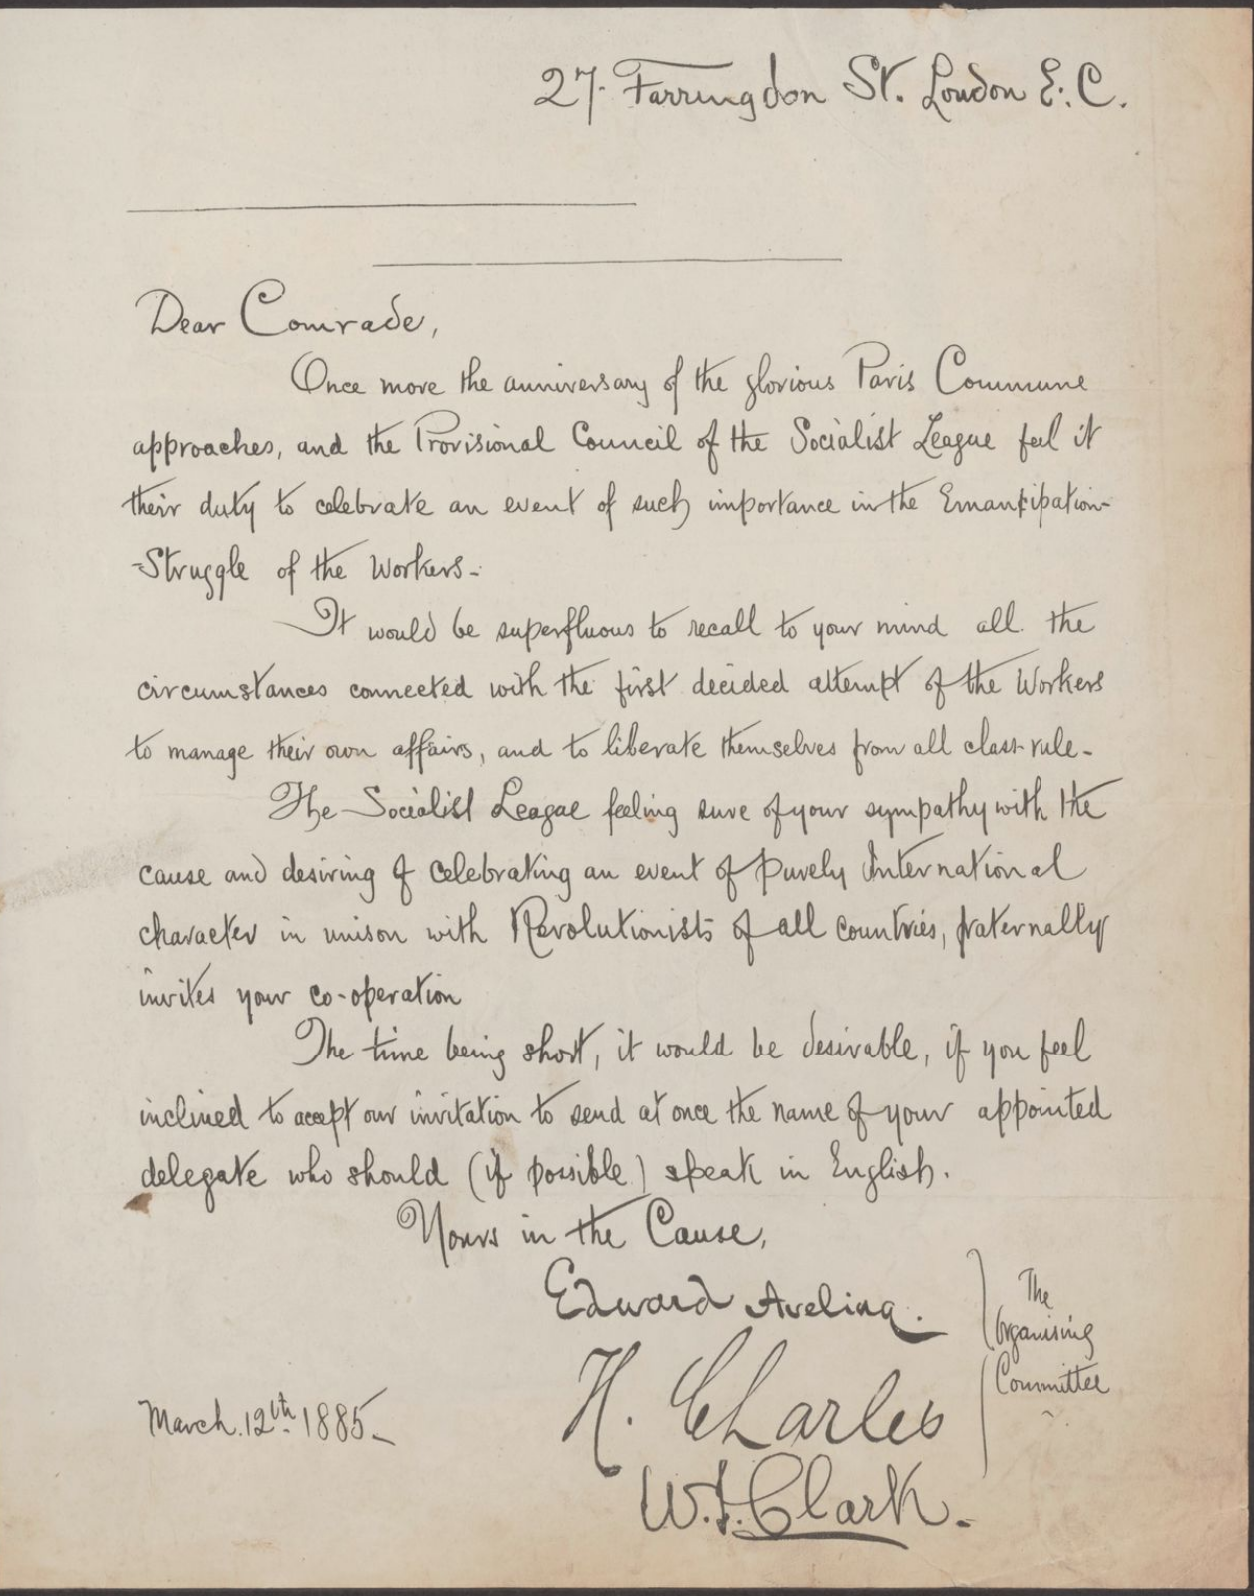 27. Farringdon St. London E.C.
Dear Comrade,
Once more the anniversary of the glorious Paris Commune
approaches, and the Provisional Council of the Socialist League feel it
their duty to celebrate an event of such importance in the Emancipation-
-Struggle of the Workers-
It would be superfluous to recall to your mind all the
circumstances connected with the first decided attempt of the Workers
to manage their own affairs, and to liberate themselves from all class-rule-
The Socialist League feeling sure of your sympathy with the
cause and desiring of celebrating an event of purely International
character in unison with Revolutionists of all countries, fraternally
invites your co-operation
The time being short, it would be desirable, if you feel
inclined to accept our invitation to send at once the name of your appointed
delegate who should (if possible) speak in English.
Yours in the Cause,
Edward Aveling.
H. Charles
W. J. Clark.
The
Organising
Committee
March. 12th. 1885-